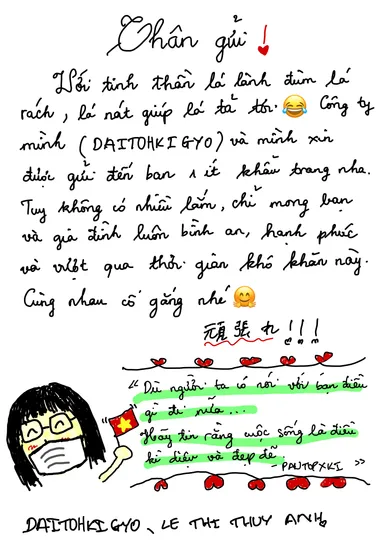 Thân gửi !
Với tinh thần lá lành đùm lá
rách, lá nát giúp lá tả tơi 😂 Công ty
mình (DAITOHKIGYO) và mình xin
được gửi đến bạn 1 ít khẩu trang nha.
Tuy không có nhiều lắm, chỉ mong bạn
và gia đình luôn bình an, hạnh phúc
và vượt qua thời gian khó khăn này.
Cùng nhau cố gắng nhé 🤗
頑張れ!!!
"Dù người ta có nói với bạn điều
gì đi nữa...
Hãy tin rằng cuộc sống là điều
kì diệu và đẹp đẽ.
- PAUTOPXKI »
DAITOHKIGYO、LE THI THUY ANH